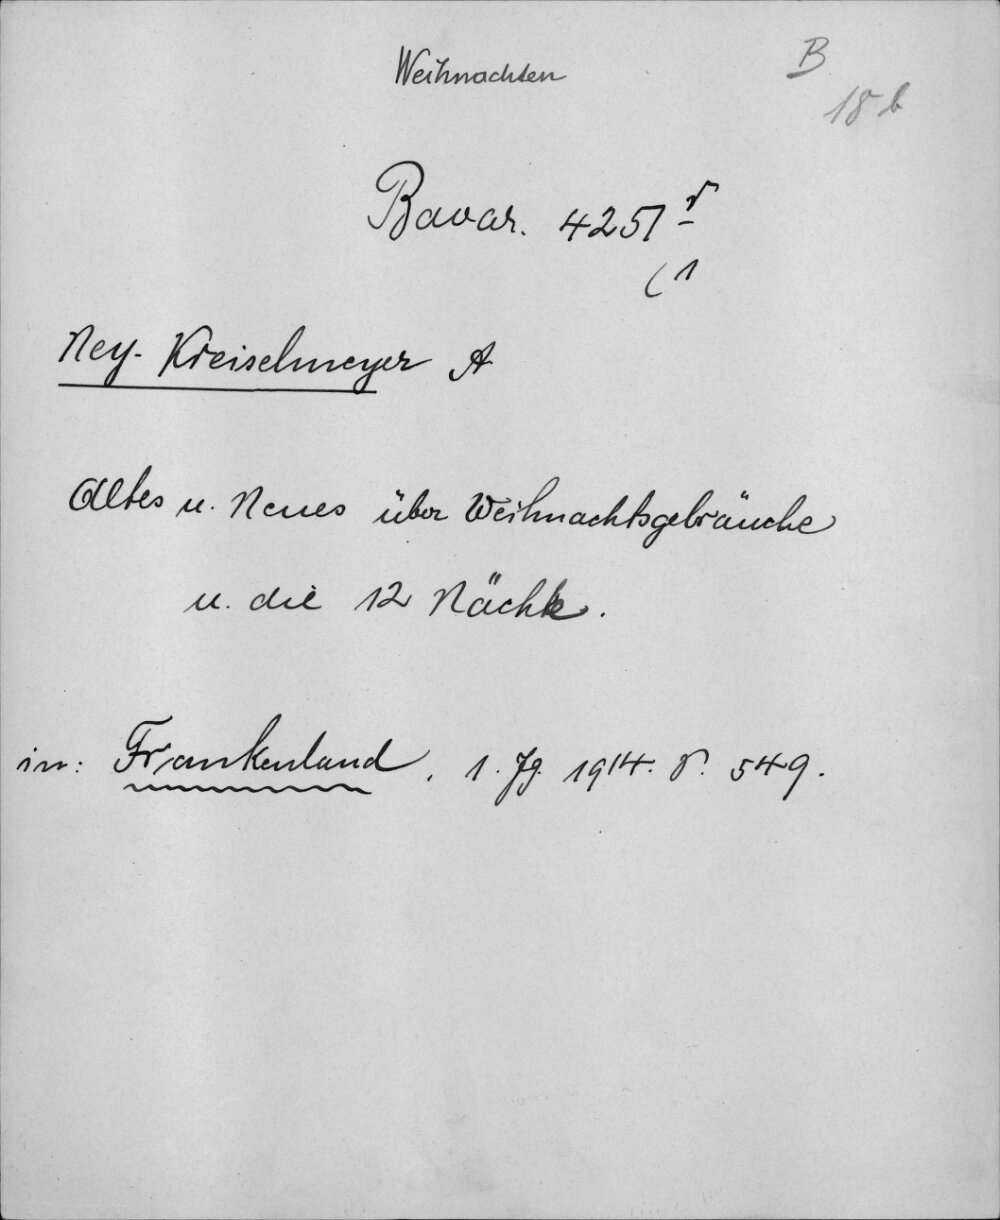 Weihnachten
B
18 b
Bavar. 4251 r
(1
Ney-Kreiselmeyer A
Altes u. Neues über Weihnachtsgebräuche
u. die 12 Nächte.
in: Frankenland, 1. Jg. 1914. S. 549.